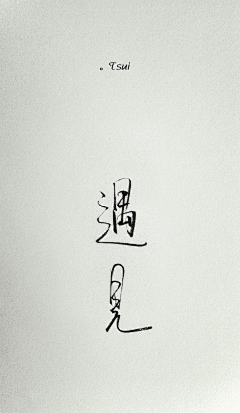 。Tsui
遇
見